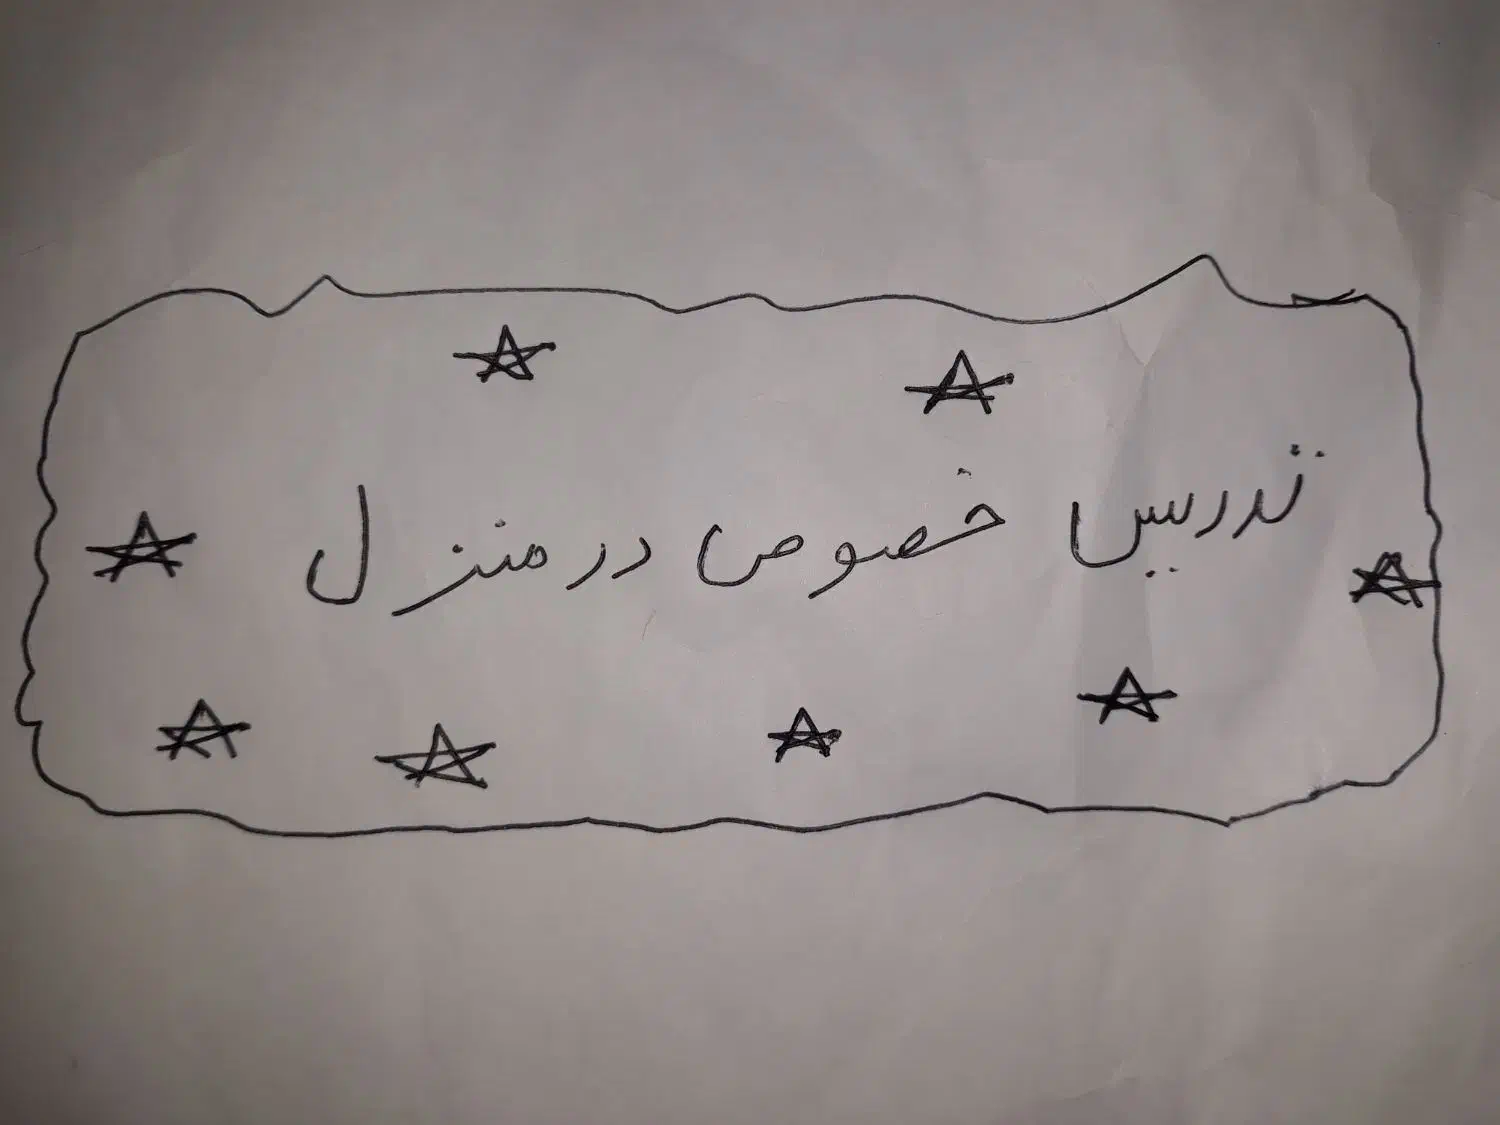 تدریس خصوص در منزل